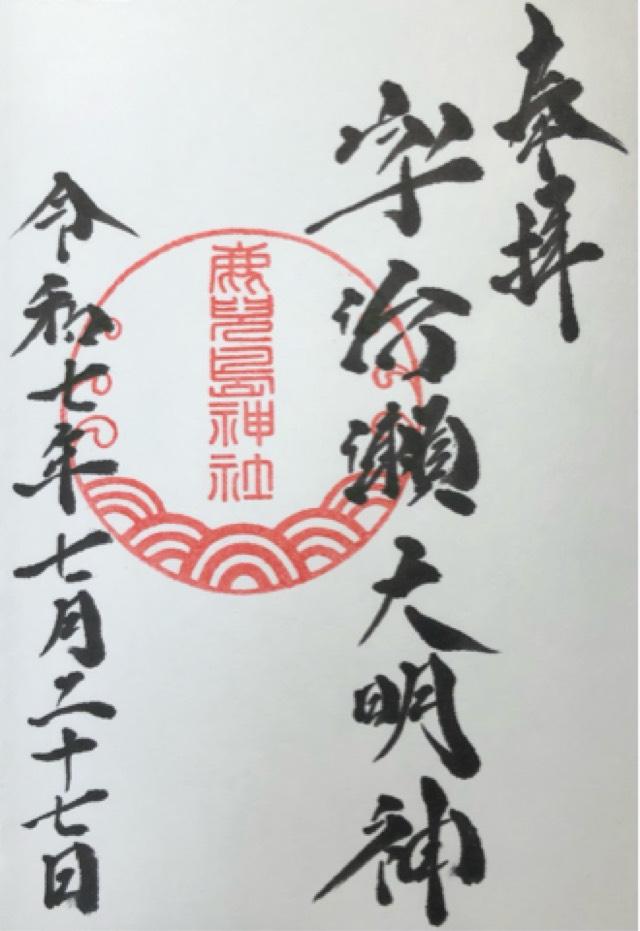 奉拝
宇治瀬大明神
鹿児島神社
令和七年七月二十七日